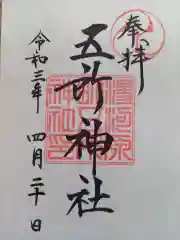 奉拝
五許神社
令和三年 四月二十日